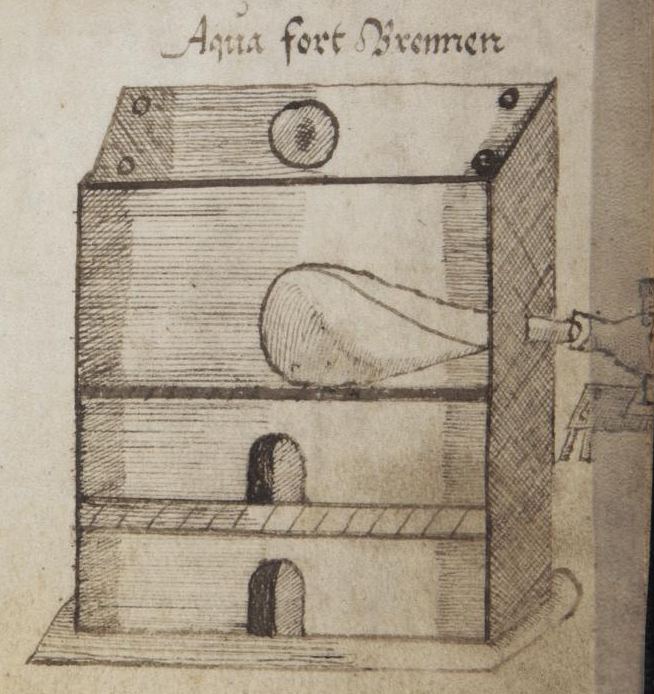 Aqua fort Brennen